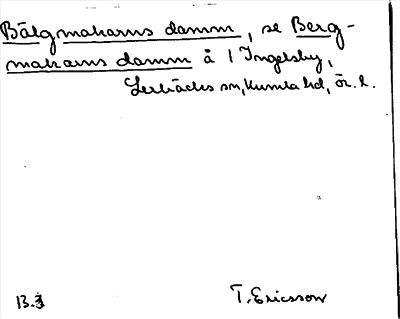 Bälgmakarns damm, se Berg-
makarns damm å 1 Ingelsby,
Lerbäcks sn, Kumla hd, ör. l.
B.3
T. Ericsson